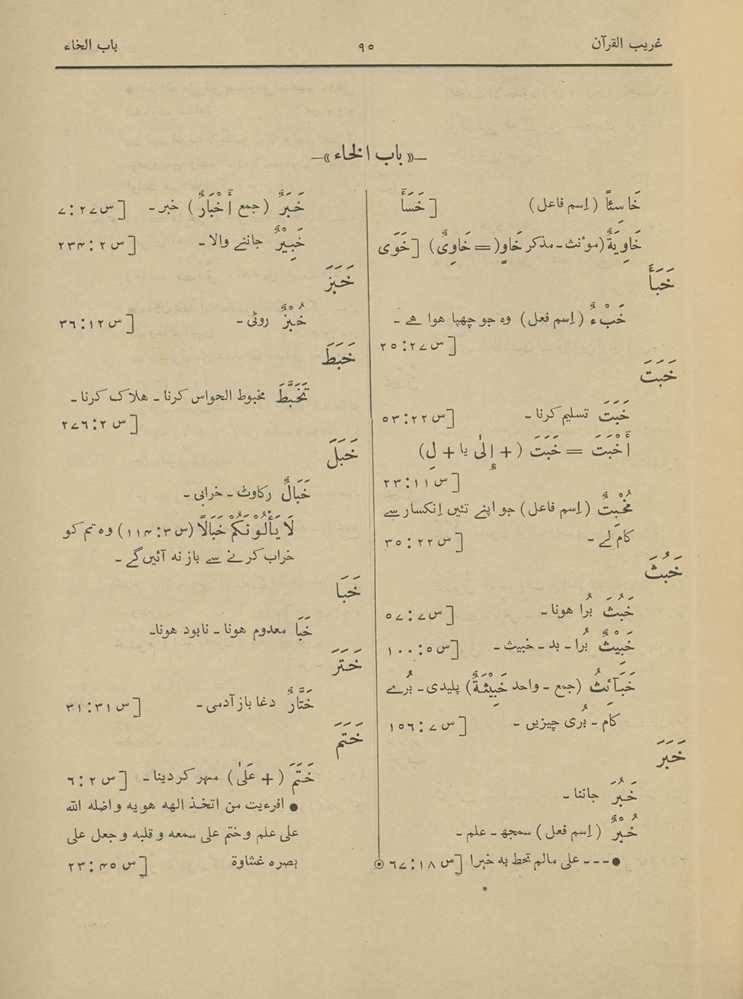 غریب القرآن ۹۵ باب الخاء
—«باب الخاء»—
خَاسِئًا (اِسم فاعل) [خَسَأَ
خَاوِيَةٌ (موٴنث ـ مذکر خَاوٍ (= خَاوِىٌ) [خَوَى
خَبَأَ
خَبْءٌ (اِسم فعل) وہ جو چھپا ہوا ہے ـ
[س ۲۷ : ۲۵
خَبَتَ
خَبَتَ تسلیم کرنا ـ [س ۲۲ : ۵۳
أَخْبَتَ = خَبَتَ (+ إِلىٰ یا + لِ)
[س ۱۱ : ۲۳
مُخْبِتٌ (اِسم فاعل) جو اپنے تئیں اِنکسار سے
کام لے ـ [س ۲۲ : ۳۵
خَبُثَ
خَبُثَ بُرا ہونا ـ [س ۷ : ۵۷
خَبِيْثٌ بُرا ـ بد ـ خبیث ـ [س ۵ : ۱۰۰
خَبَآئِثُ (جمع ـ واحد خَبِيْثَةٌ) پلیدی ـ بُرے
کام ـ بُری چیزیں ـ [س ۷ : ۱۵۶
خَبَرَ
خَبُرَ جاننا ـ
خُبْرٌ (اِسم فعل) سمجھ ـ علم ـ
● ـ ـ ـ علی مالم تحط به خبرا [س ۱۸ : ۶۷
خَبَرٌ (جمع أَخْبَارٌ) خبر ـ [س ۲۷ : ۷
خَبِيْرٌ جاننے والا ـ [س ۲ : ۲۳۴
خَبَزَ
خُبْزٌ روٹی ـ [س ۱۲ : ۳۶
خَبَطَ
تَخَبَّطَ مخبوط الحواس کرنا ـ ہلاک کرنا ـ
[س ۲ : ۲۷۶
خَبَلَ
خَبَالٌ رکاوٹ ـ خرابی ـ
لَا يَأْلُوْنَكُمْ خَبَالًا (س ۳ : ۱۱۴) وہ تم کو
خراب کرنے سے باز نہ آئیں گے ـ
خَبَا
خَبَا معدوم ہونا ـ نابود ہونا ـ
خَتَرَ
خَتَّارٌ دغا باز آدمی ـ [س ۳۱ : ۳۱
خَتَمَ
خَتَمَ (+ عَلىٰ) مہر کردینا ـ [س ۲ : ۶
● افرءیت من اتخذ الهه هویه و اضله الله
علی علم و ختم علی سمعه و قلبه و جعل علی
بصره غشاوة [س ۴۵ : ۲۳